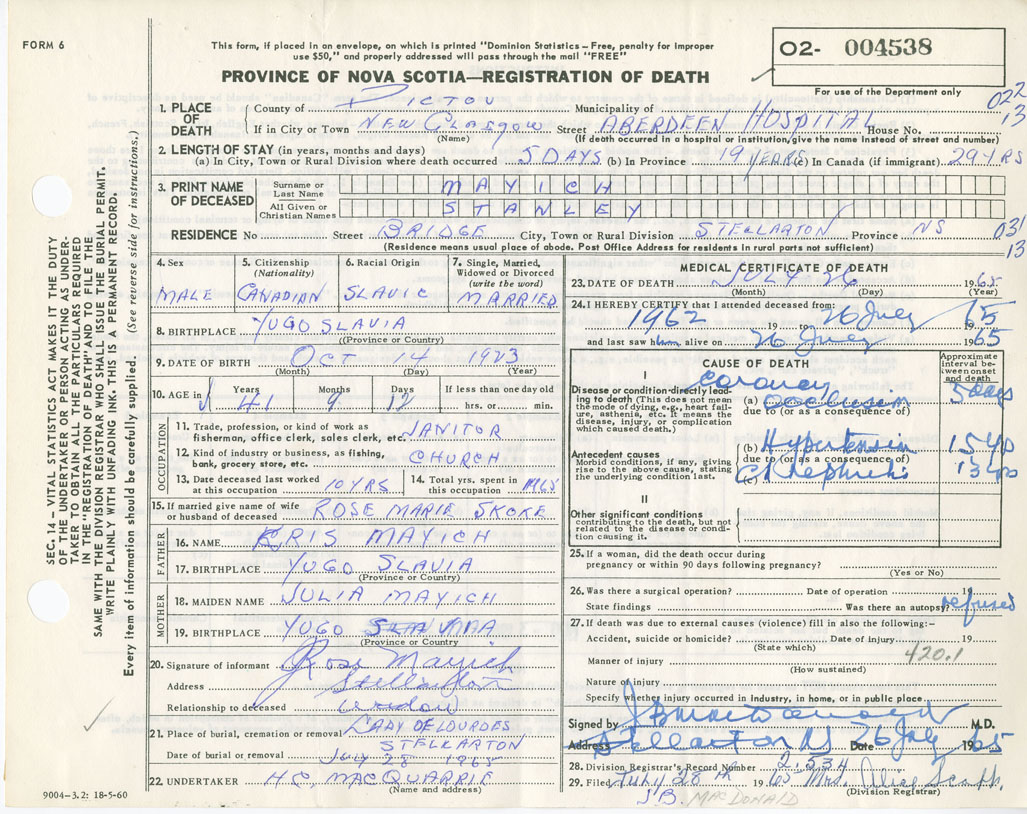 FORM 6
This form, if placed in an envelope, on which is printed "Dominion Statistics – Free, penalty for improper
use $50," and properly addressed will pass through the mail "FREE"
O2- 004538
PROVINCE OF NOVA SCOTIA—REGISTRATION OF DEATH
For use of the Department only
022
13
1. PLACE OF DEATH
County of PICTOU Municipality of
If in City or Town NEW GLASGOW Street ABERDEEN HOSPITAL House No.
(Name) (If death occurred in a hospital or institution, give the name instead of street and number)
2. LENGTH OF STAY (in years, months and days)
(a) In City, Town or Rural Division where death occurred 5 DAYS (b) In Province 19 YEARS (c) In Canada (if immigrant) 29 YRS
3. PRINT NAME OF DECEASED
Surname or Last Name MAYICH
All Given or Christian Names STANLEY
RESIDENCE No Street BRIDGE City, Town or Rural Division STELLARTON Province NS
031
13
(Residence means usual place of abode. Post Office Address for residents in rural parts not sufficient)
4. Sex
MALE
5. Citizenship (Nationality)
CANADIAN
6. Racial Origin
SLAVIC
7. Single, Married, Widowed or Divorced (write the word)
MARRIED
8. BIRTHPLACE YUGO SLAVIA
(Province or Country)
9. DATE OF BIRTH OCT 14 1923
(Month) (Day) (Year)
10. AGE in
Years Months Days If less than one day old
41 9 12 hrs. or min.
OCCUPATION
11. Trade, profession, or kind of work as
fisherman, office clerk, sales clerk, etc. JANITOR
12. Kind of industry or business, as fishing,
bank, grocery store, etc. CHURCH
13. Date deceased last worked
at this occupation 10 YRS
14. Total yrs. spent in
this occupation 1965
15. If married give name of wife
or husband of deceased ROSE MARIE SKOKE
FATHER
16. NAME KRIS MAYICH
17. BIRTHPLACE YUGO SLAVIA
(Province or Country)
MOTHER
18. MAIDEN NAME JULIA MAYICH
19. BIRTHPLACE YUGO
(Province or Country)
20. Signature of informant Rose Mayich
Address Stellarton
Relationship to deceased widow
21. Place of burial, cremation or removal LADY OF LOURDES
STELLARTON
Date of burial or removal JULY 28 1965
22. UNDERTAKER H.C. MACQUARRIE
(Name and address)
9004-3.2: 18-5-60
MEDICAL CERTIFICATE OF DEATH
23. DATE OF DEATH JULY 26 1965
(Month) (Day) (Year)
24. I HEREBY CERTIFY that I attended deceased from:
1962 19 to 26 July 65
and last saw him alive on 26 July 1965
CAUSE OF DEATH
Approximate interval between onset and death
I
Disease or condition directly leading to death (This does not mean the mode of dying, e.g., heart failure, asthenia, etc. It means the disease, injury, or complication which caused death.)
coronary
(a) occlusion 5 days
due to (or as a consequence of)
Antecedent causes
Morbid conditions, if any, giving rise to the above cause, stating the underlying condition last.
(b) Hypertension 15 yrs
due to (or as a consequence of)
(c) Ch Nephritis 13 yrs
II
Other significant conditions
contributing to the death, but not related to the disease or condition causing it.
25. If a woman, did the death occur during
pregnancy or within 90 days following pregnancy?
(Yes or No)
26. Was there a surgical operation? Date of operation 19
State findings Was there an autopsy? refused
27. If death was due to external causes (violence) fill in also the following:-
Accident, suicide or homicide? Date of injury 19
(State which)
420.1
Manner of injury
(How sustained)
Nature of injury
Specify whether injury occurred in industry, in home, or in public place
Signed by J B MacDonald M.D.
Address Stellarton NS Date 26 July 1965
28. Division Registrar's Record Number 2534
29. Filed July 28th 1965 Mrs. Alice
(Division Registrar)
J.B. MACDONALD
SEC. 14 – VITAL STATISTICS ACT MAKES IT THE DUTY
OF THE UNDERTAKER OR PERSON ACTING AS UNDER-
TAKER TO OBTAIN ALL THE PARTICULARS REQUIRED
IN THE "REGISTRATION OF DEATH" AND TO FILE THE
SAME WITH THE DIVISION REGISTRAR WHO SHALL ISSUE THE BURIAL PERMIT.
WRITE PLAINLY WITH UNFADING INK. THIS IS A PERMANENT RECORD.
Every item of information should be carefully supplied. (See reverse side for instructions.)